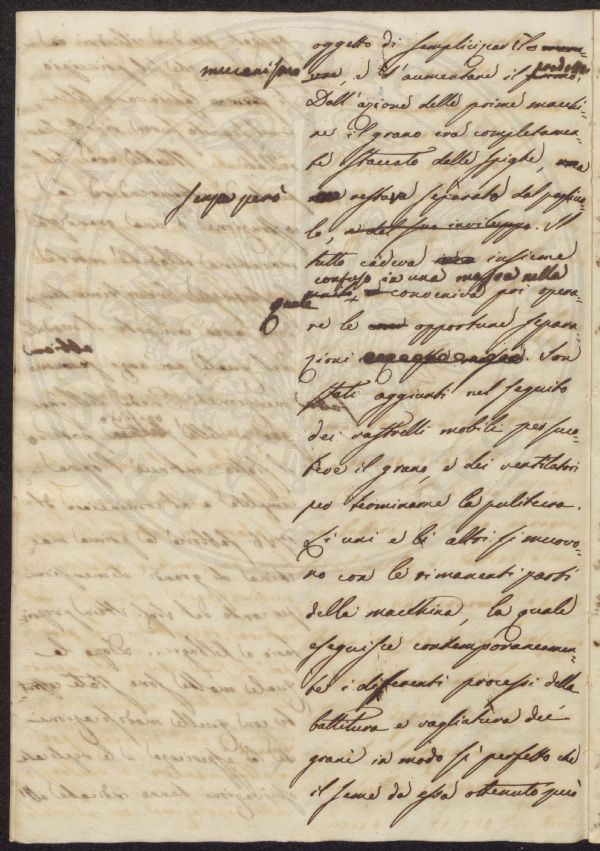 oggetto di semplicizzare il
meccanismo
, e d'aumentare il prodotto.
Dall'azione delle prime macchi-
ne il grano era completamen-
te staccato delle spighe,
senza però
restare separato dal pagliuo-
lo, e dal suo inviluppo. Il
tutto cadeva insieme
confuso in una massa nella
quale
conveniva poi opera-
re le opportune separa-
zioni. Son
stati aggiunti nel seguito
dei rastrelli mobili per scuo-
tere il grano, e dei ventilatori
per terminarne la pulitura.
Li uni e li altri si muovo-
no con le rimanenti parti
della macchina, la quale
eseguisce contemporaneamen-
te i differenti processi della
battitura e vagliatura dei
grani in modo sì perfetto che
il seme da essa ottenuto può